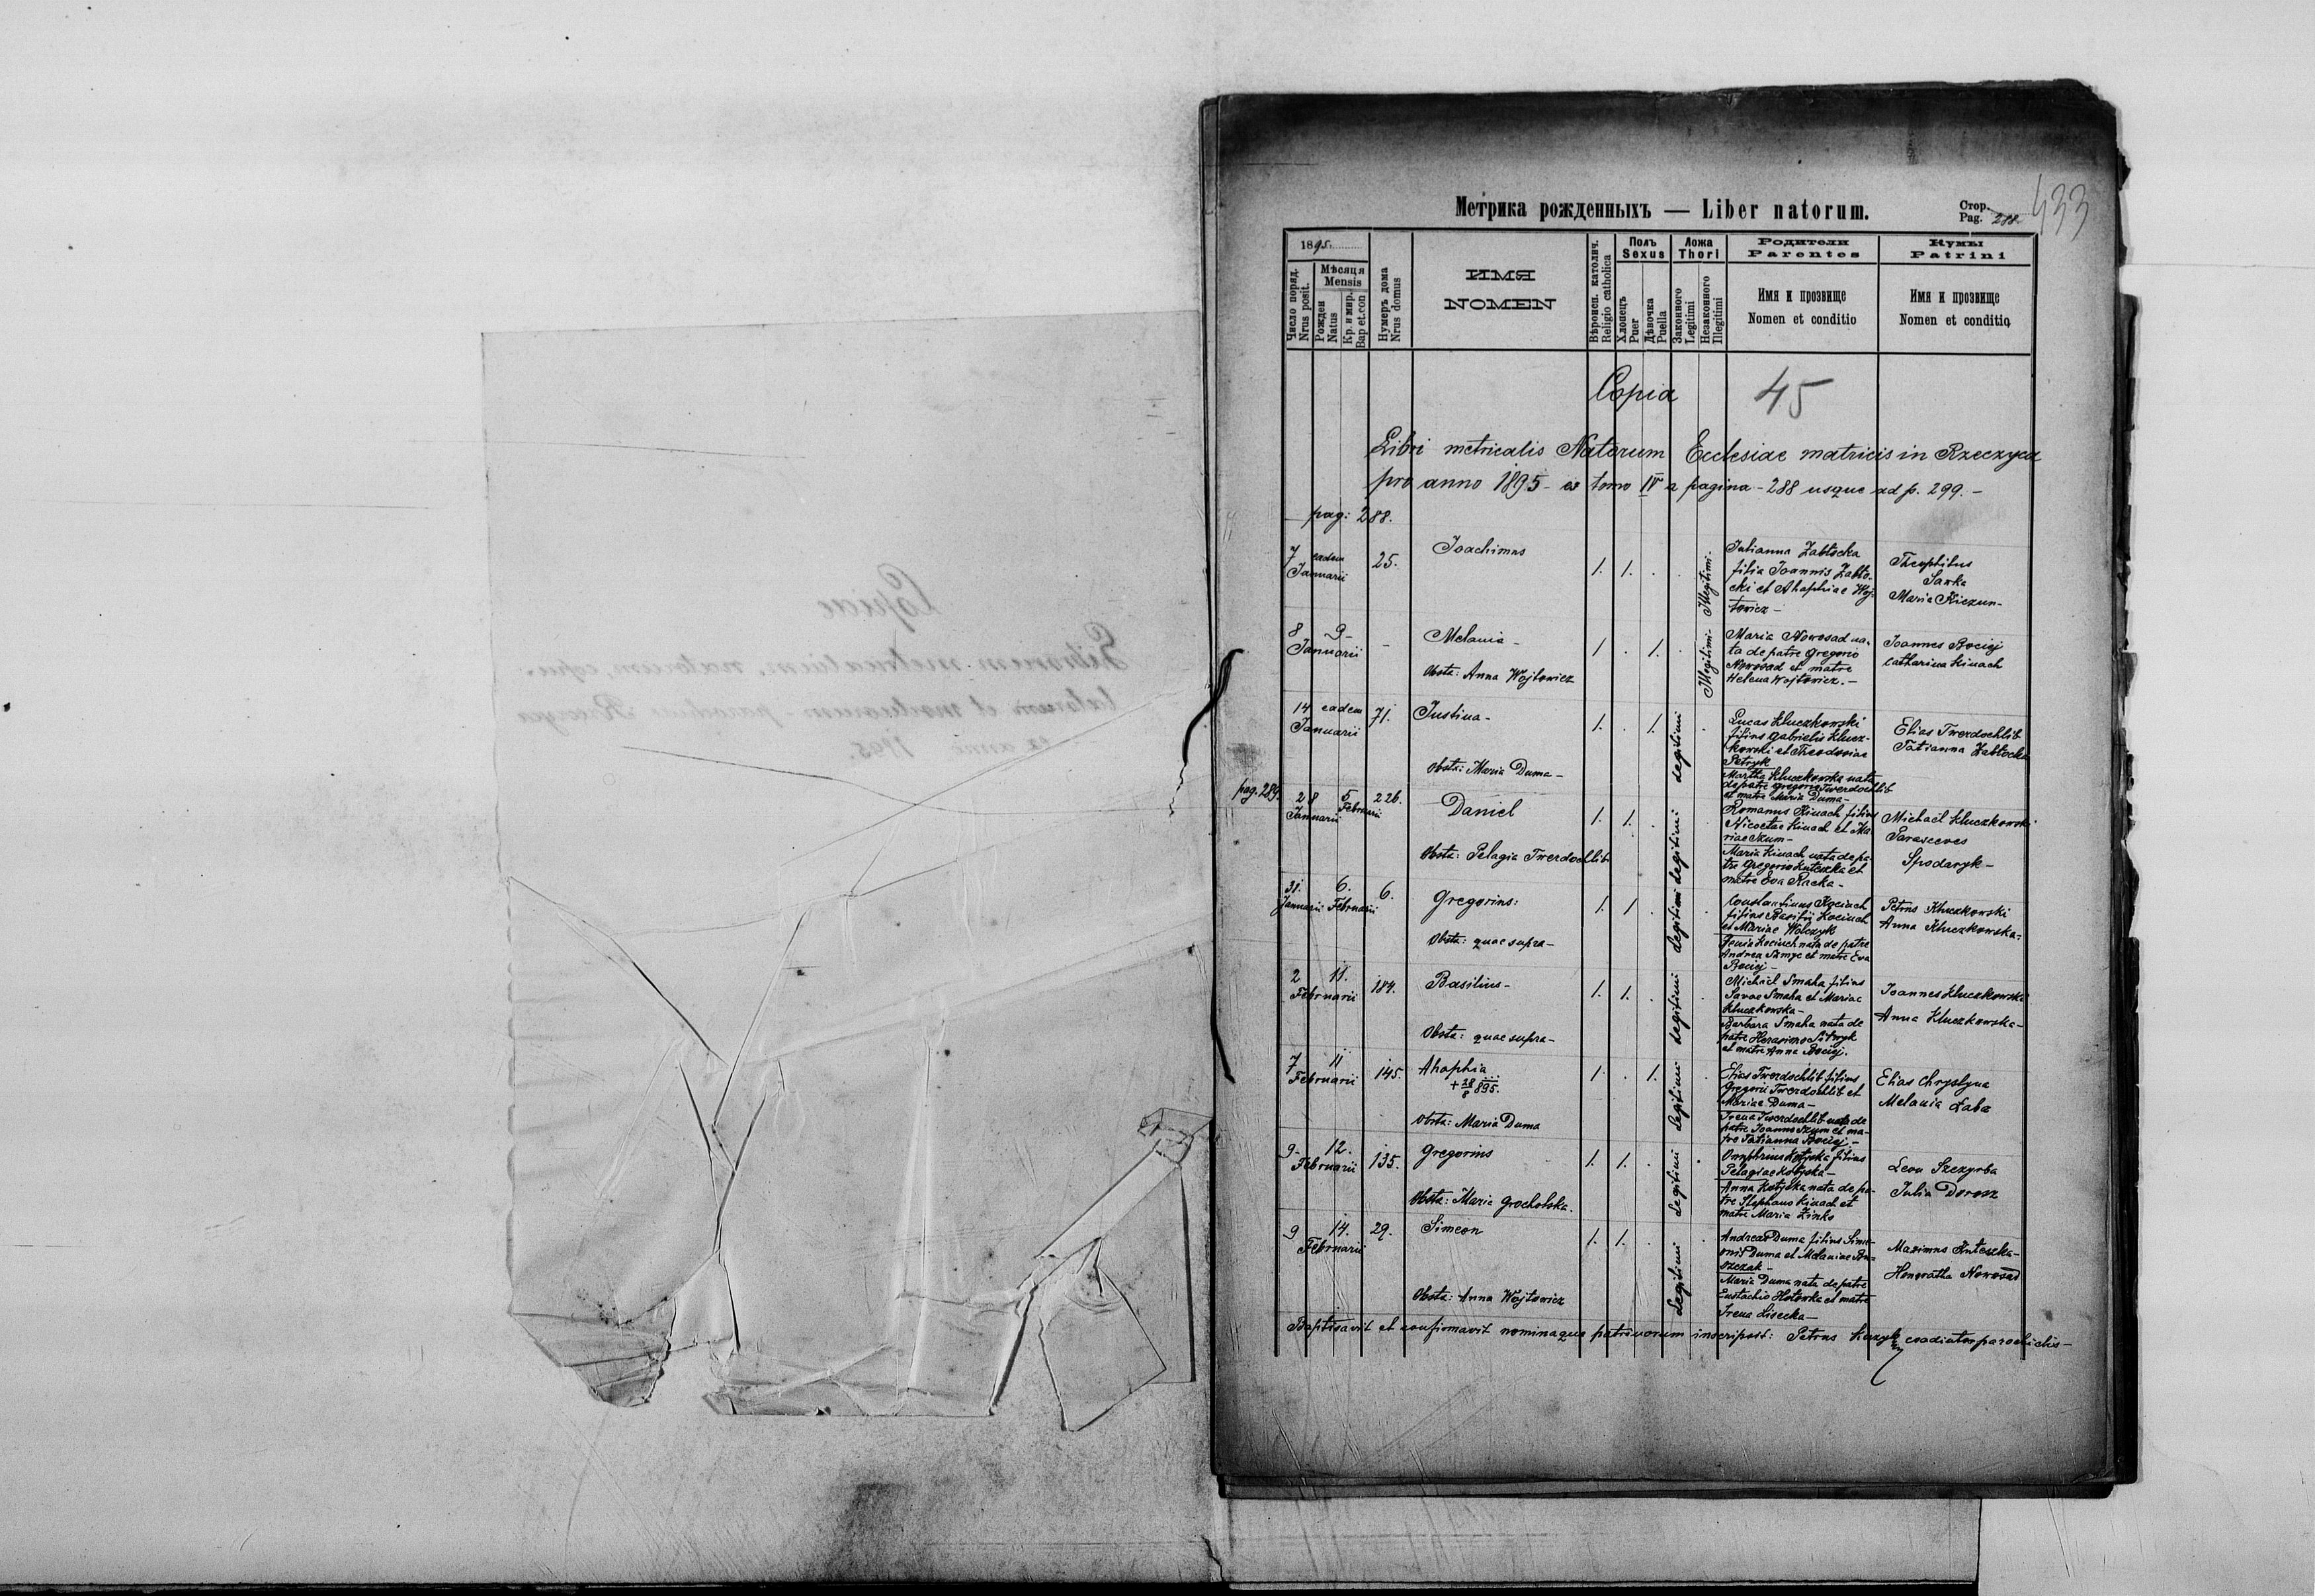 Copiae
Librorum metricalium, natorum, copu-
latorum et mortuorum - parochiae Rzeczyca
ex anno 1895.
433
Метрика рожденныхъ — Liber natorum.
Стор.
Pag. 288.
1895.
Число поряд.
Nrus posit.
Мѣсяця
Mensis
Рожден
Natus
Кр. и мир.
Bap et.con
Нумеръ дома
Nrus domus
ИМЯ
NOMEN
Вѣроисп. католич.
Religio catholica
Полъ
Sexus
Хлопецъ
Puer
Дѣвочка
Puella
Ложа
Thori
Законного
Legitimi
Незаконного
Illegitimi
Родители
Parentes
Имя и прозвище
Nomen et conditio
Кумы
Patrini
Имя и прозвище
Nomen et conditio
Copia 45
Libri metricalis Natorum Ecclesiae matricis in Rzeczyca
pro anno 1895 - ex tomo IV a pagina - 288 usque ad p. 299. -
pag: 288.
7 eadem
Januarii
25.
Joachimus
1. 1. . .
Illegitimi.
Julianna Zabłocka
filia Joannis Zabło-
cki et Ahaphiae Woj-
towicz -
Theophilus
Sawka
Maria Kiczun -
8 9 -
Januarii
-
Melania -
Obsta: Anna Wojtowicz
1 . 1. .
Illegitimi -
Maria Nowosad na-
ta de patre Gregorio
Nowosad et matre
Helena Wojtowicz. -
Joannes Bociej
Catharina Kinach
14 eadem
Januarii
71.
Justina -
Obsta: Maria Duma -
1. . 1.
Legitimi
Lucas Kluczkowski
filius Gabrielis Klucz-
kowski et Theodosiae
Petryk
Martha Kluczkowska nata
de patre Gregorio Twerdochlib
et matre Maria Duma -
Elias Twerdochlib
Tatianna Zabłocka
pag. 289.
28 5
Januarii Februarii
226.
Daniel
Obsta: Pelagia Twerdochlib
1. 1. .
Legitimi
Romanus Kinach filius
Nicetae Kinach et Ma
riae Szum -
Maria Kinach nata de pa-
tre Gregorio Kuteszka et
matre Eva Racka -
Michaël Kluczkowski
Parasceves
Spodaryk -
31. 6.
Januarii Februarii
6.
Gregorius:
Obsta: quae supra -
1. 1 .
Legitimi
Constantinus Kociuch
filius Basilii Kociuch
et Mariae Wolczyk
Genia Kociuch nata de patre
Andrea Szmyc et matre Eva
Bociej -
Petrus Kluczkowski
Anna Kluczkowska:
2 11.
Februarii
184.
Basilius -
Obsta: quae supra -
1. 1. .
Legitimi
Michaël Smaha filius
Savae Smaha et Mariae
Kluczkowska -
Barbara Smaha nata de
patre Herasimo
et matre Anna Bociej.
Joannes Kluczkowski
Anna Kluczkowska -
7 11
Februarii
145.
Ahaphia
+ 28/8 895.
Obsta: Maria Duma
1. . 1.
Legitimi
Elias Twerdochlib filius
Gregorii Twerdochlib et
Mariae Duma -
Irena Twerdochlib nata de
patre Joanne Szum et ma-
tre Tatianna Bociej -
Elias Chrystyna
Melania Łaba
9 - 12.
Februarii
135.
Gregorius
Obsta: Maria Grocholska.
1. 1. .
Legitimi
Onuphrius Kotyska filius
Pelagiae Kotyska -
Anna Kotyska nata de pa-
tre Stephano Kinach et
matre Maria Zinko
Leon Szczyrba
Julia Dorosz
9 14.
Februarii
29.
Simeon
Obsta: Anna Wojtowicz
1. 1. .
Legitimi
Andreas Duma filius Sime-
onis Duma et Melaniae
Maria Duma nata de patre
Eustachio Hotowka et matre
Irena Lisecka -
Maximus Kuteszka -
Honoratha Nowosad
Baptisavit et confirmavit nominaque patrinorum inscripsit: Petrus coadiutor parochialis -